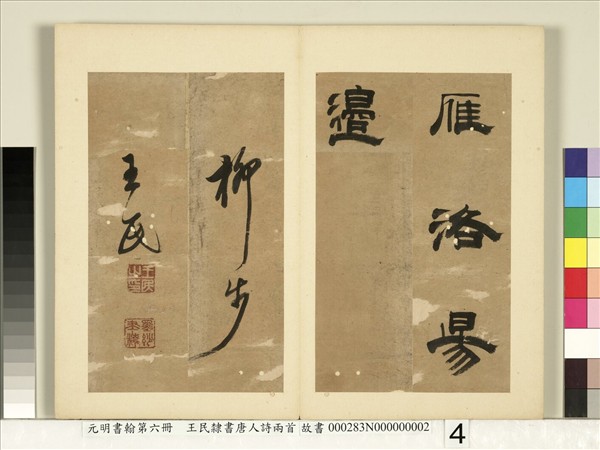 雁洛昜
邉
柳步
王民
元明書翰第六冊 王民隸書唐人詩兩首 故書 000283N000000002
4